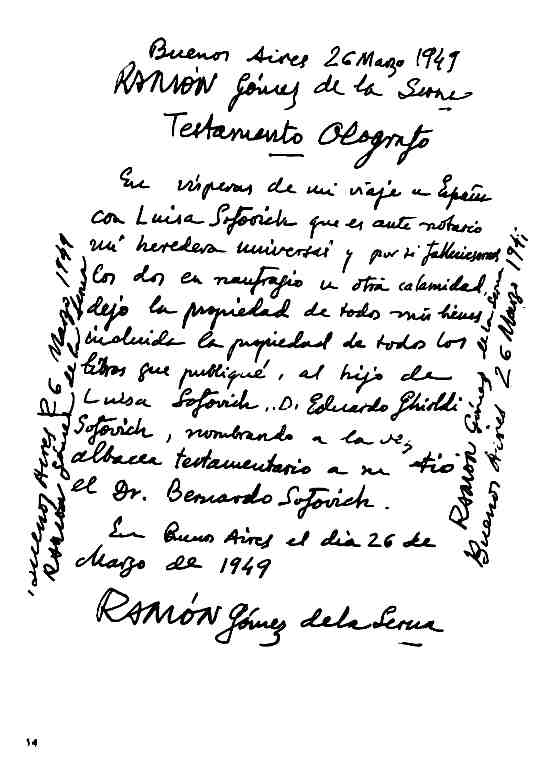 Buenos Aires 26 Marzo 1949
RAMÓN Gómez de la Serna
Testamento Ológrafo
En vísperas de mi viaje a España
con Luisa Sofovich que es ante notario
mi heredera universal y por si falleciésemos
los dos en naufragio u otra calamidad,
dejo la propiedad de todos mis bienes,
incluida la propiedad de todos los
libros que publiqué, al hijo de
Luisa Sofovich, D. Eduardo Ghioldi
Sofovich, nombrando a la vez
albacea testamentario a su tío
el Dr. Bernardo Sofovich.
En Buenos Aires el dia 26 de
Marzo de 1949
RAMÓN Gómez de la Serna
Buenos Aires 26 Marzo 1949
RAMÓN Gómez de la Serna
RAMÓN Gómez de la Serna
Buenos Aires 26 Marzo 194
14